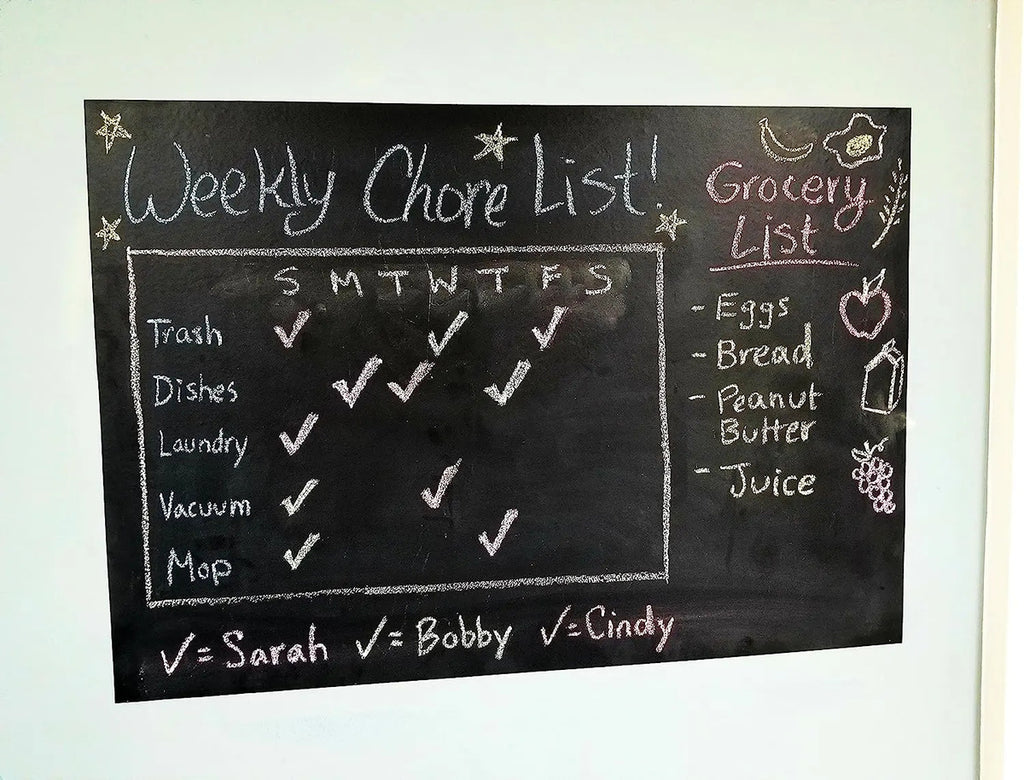 Weekly Chore List!
S M T W T F S
Trash ✓ ✓ ✓
Dishes ✓ ✓ ✓
Laundry ✓
Vacuum ✓ ✓
Mop ✓ ✓
✓ = Sarah ✓ = Bobby ✓ = Cindy
Grocery
List
- Eggs
- Bread
- Peanut
Butter
- Juice